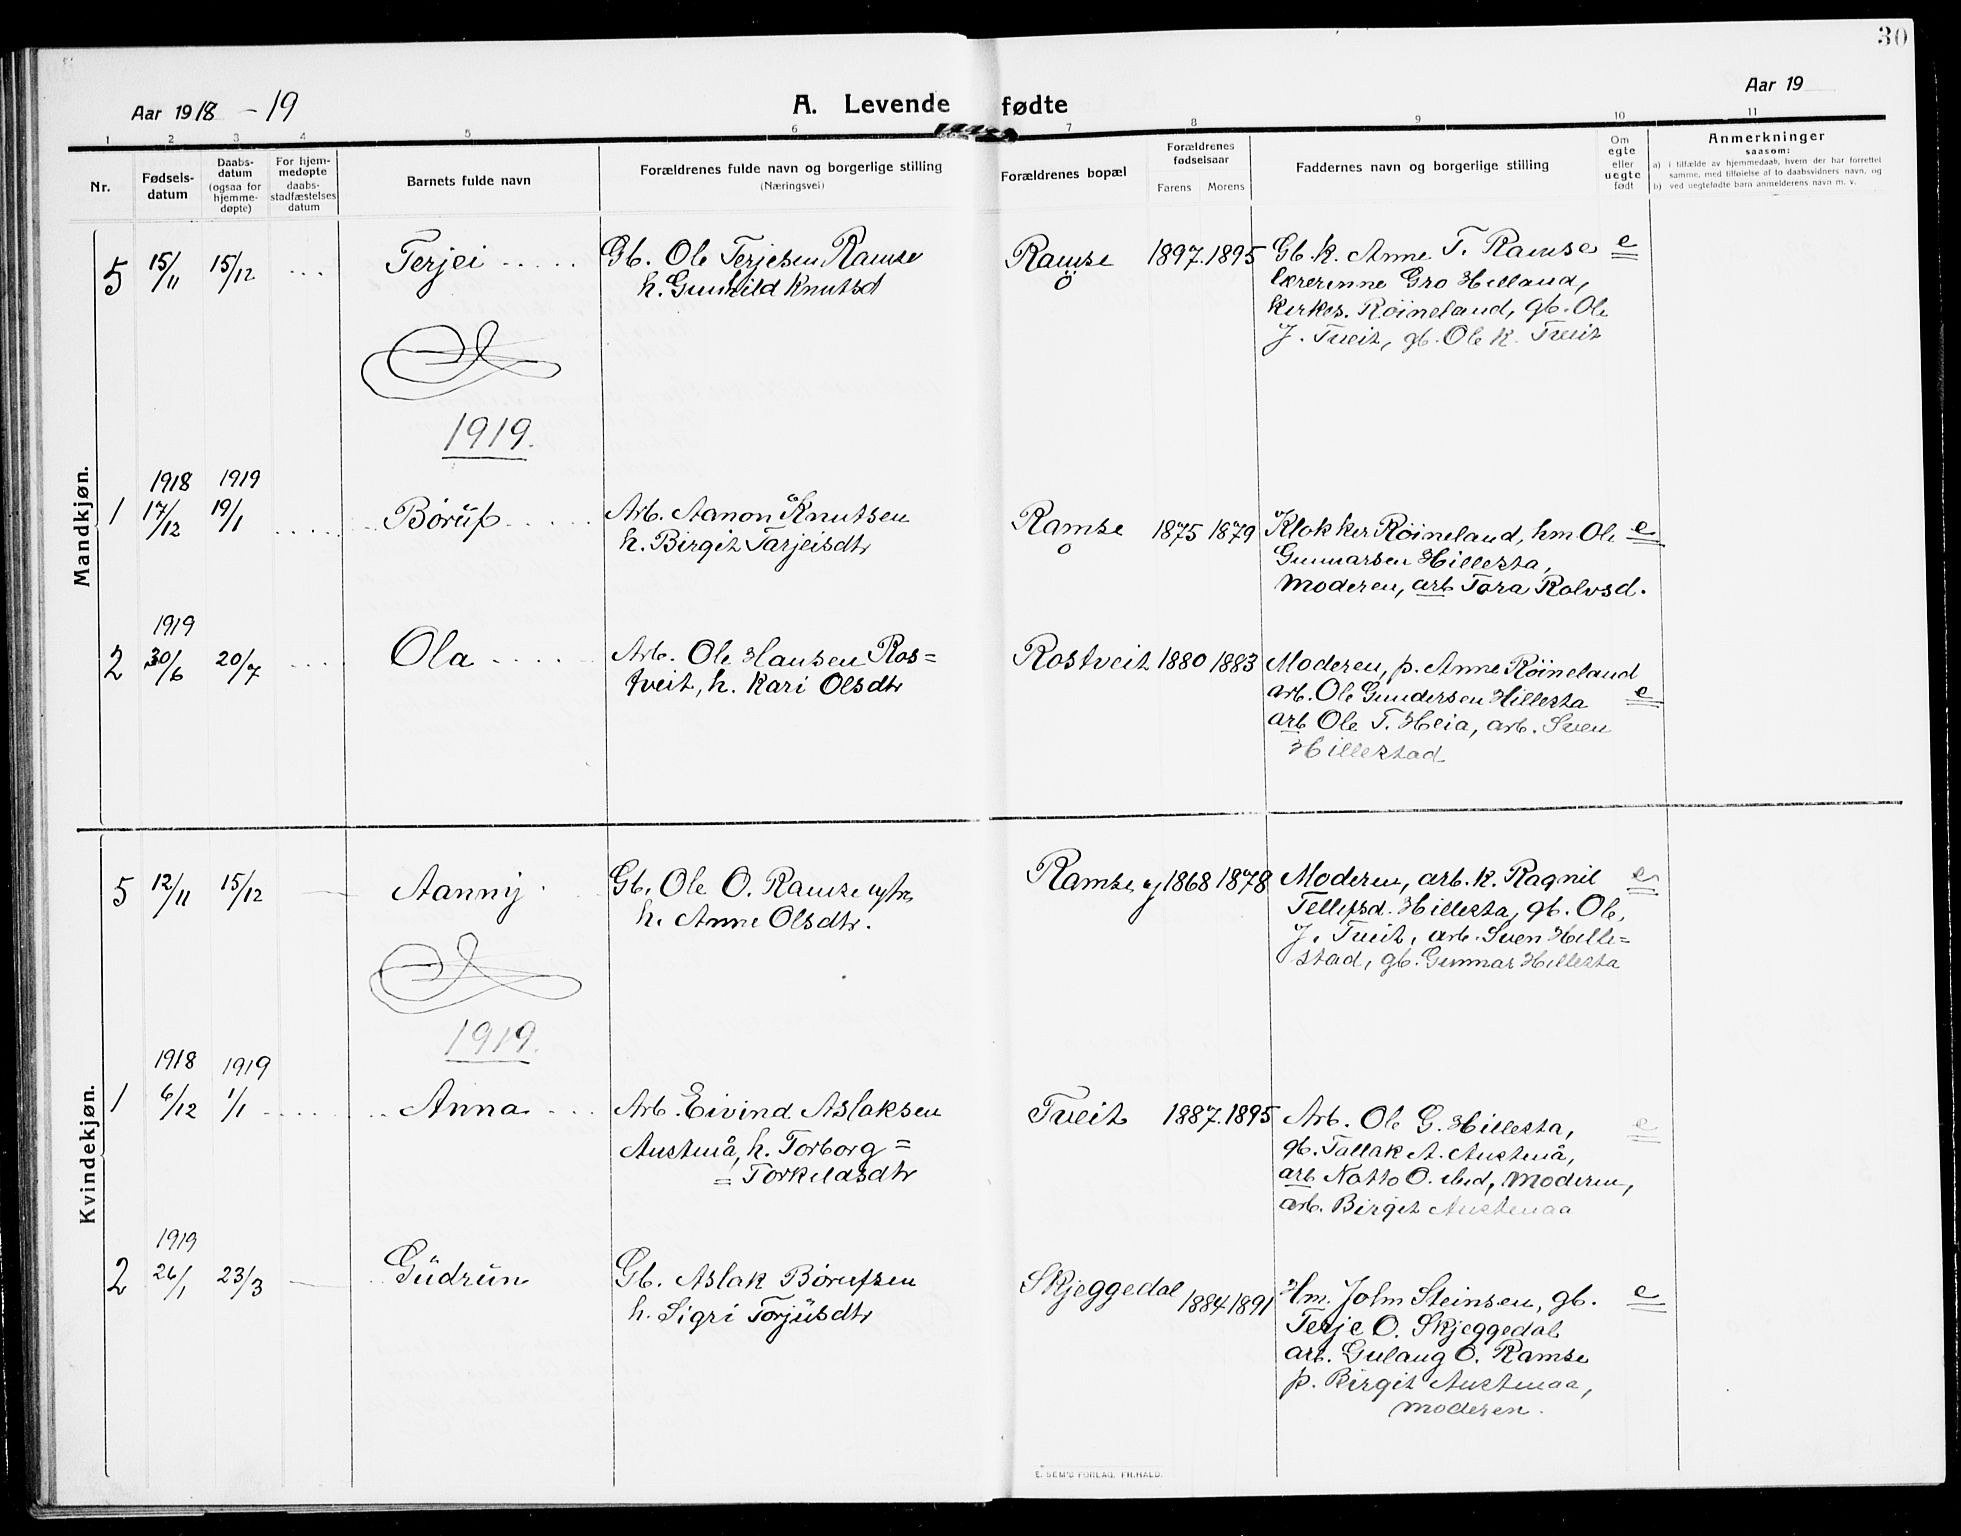 30
Aar 1918 - 19
A. Levende fødte
Aar 19
1 2 3 4 5 6 7 8 9 10 11
Nr.
Fødsels-
datum
Daabs-
datum
(ogsaa for
hjemme-
døpte)
For hjem-
medøpte
daabs-
stadfæstelses
datum
Barnets fulde navn
Forældrenes fulde navn og borgerlige stilling
(Næringsvei)
Forældrenes bopæl
Forældrenes
fødselsaar
Farens Morens
Faddernes navn og borgerlige stilling
Om
egte
eller
uegte
født
Anmerkninger
saasom:
a) i tilfælde av hjemmedaab, hvem der har forrettet
samme, med tilføielse af to daabsvidners navn, og
b) ved uegtefødte barn anmelderens navn m. v.
Mandkjøn.
5 15/11 15/12 ... Terjei ..... Gb. Ole Terjesen Ramse
h. Gunhild Knutsd
Ramse ö 1897. 1895 Gb. k. Anne T. Ramse e
lærerinne Gro Hilland,
kirkes. Röineland, gb. Ole
J. Tveit, gb. Ole K. Tveit
1919.
1918 1919
1 17/12 19/1 .... Børuf ..... Arb. Aanon Knutsen
h. Birgit Tarjeisdtr
Ramse o 1875 1879 Klokker Röineland, hm Ole e
Gunnarsen Hillesta,
Moderen, arb Tora Rolvsd.
1919
2 30/6 20/7 .... Ola ..... Arb. Ole Hansen Ros=
tveit, h. Kari Olsdtr
Rostveit 1880 1883 Moderen, p. Anne Röineland
arb. Ole Gundersen Hillesta e
arb Ole T. Heia, arb. Sven
Hillestad
Kvindekjøn.
5 12/11 15/12 — Aanny . Gb. Ole O. Ramse
h. Anne Olsdtr.
Ramse y 1868 1878 Moderen, arb. k. Ragnil e
Tellefsd. Hillesta, gb. Ole,
J. Tveit, arb. Sven Hille=
stad, gb. Gunnar Hillesta
1919.
1918 1919
1 6/12 1/1 ..... Anna ... Arb. Eivind Aslaksen
Austenå, h. Torborg =
= Torkildsdtr
Tveit 1887. 1895 Arb. Ole G. Hillesta, e
gb. Tallak A. Austenå,
arb Natto O. ibid, Moderen,
arb. Birgit Austenaa
1919
2 26/1 23/3 — Gudrun Gb. Aslak Børufsen
h. Sigri Torjusdtr
Skjeggedal 1884 1891 Hm. John Steinsen, gb. e
Terje O. Skjeggedal
arb. Gulaug O. Ramse
p. Birgit Austenaa,
moderen.
E. SEM'S FORLAG, FR.HALD.